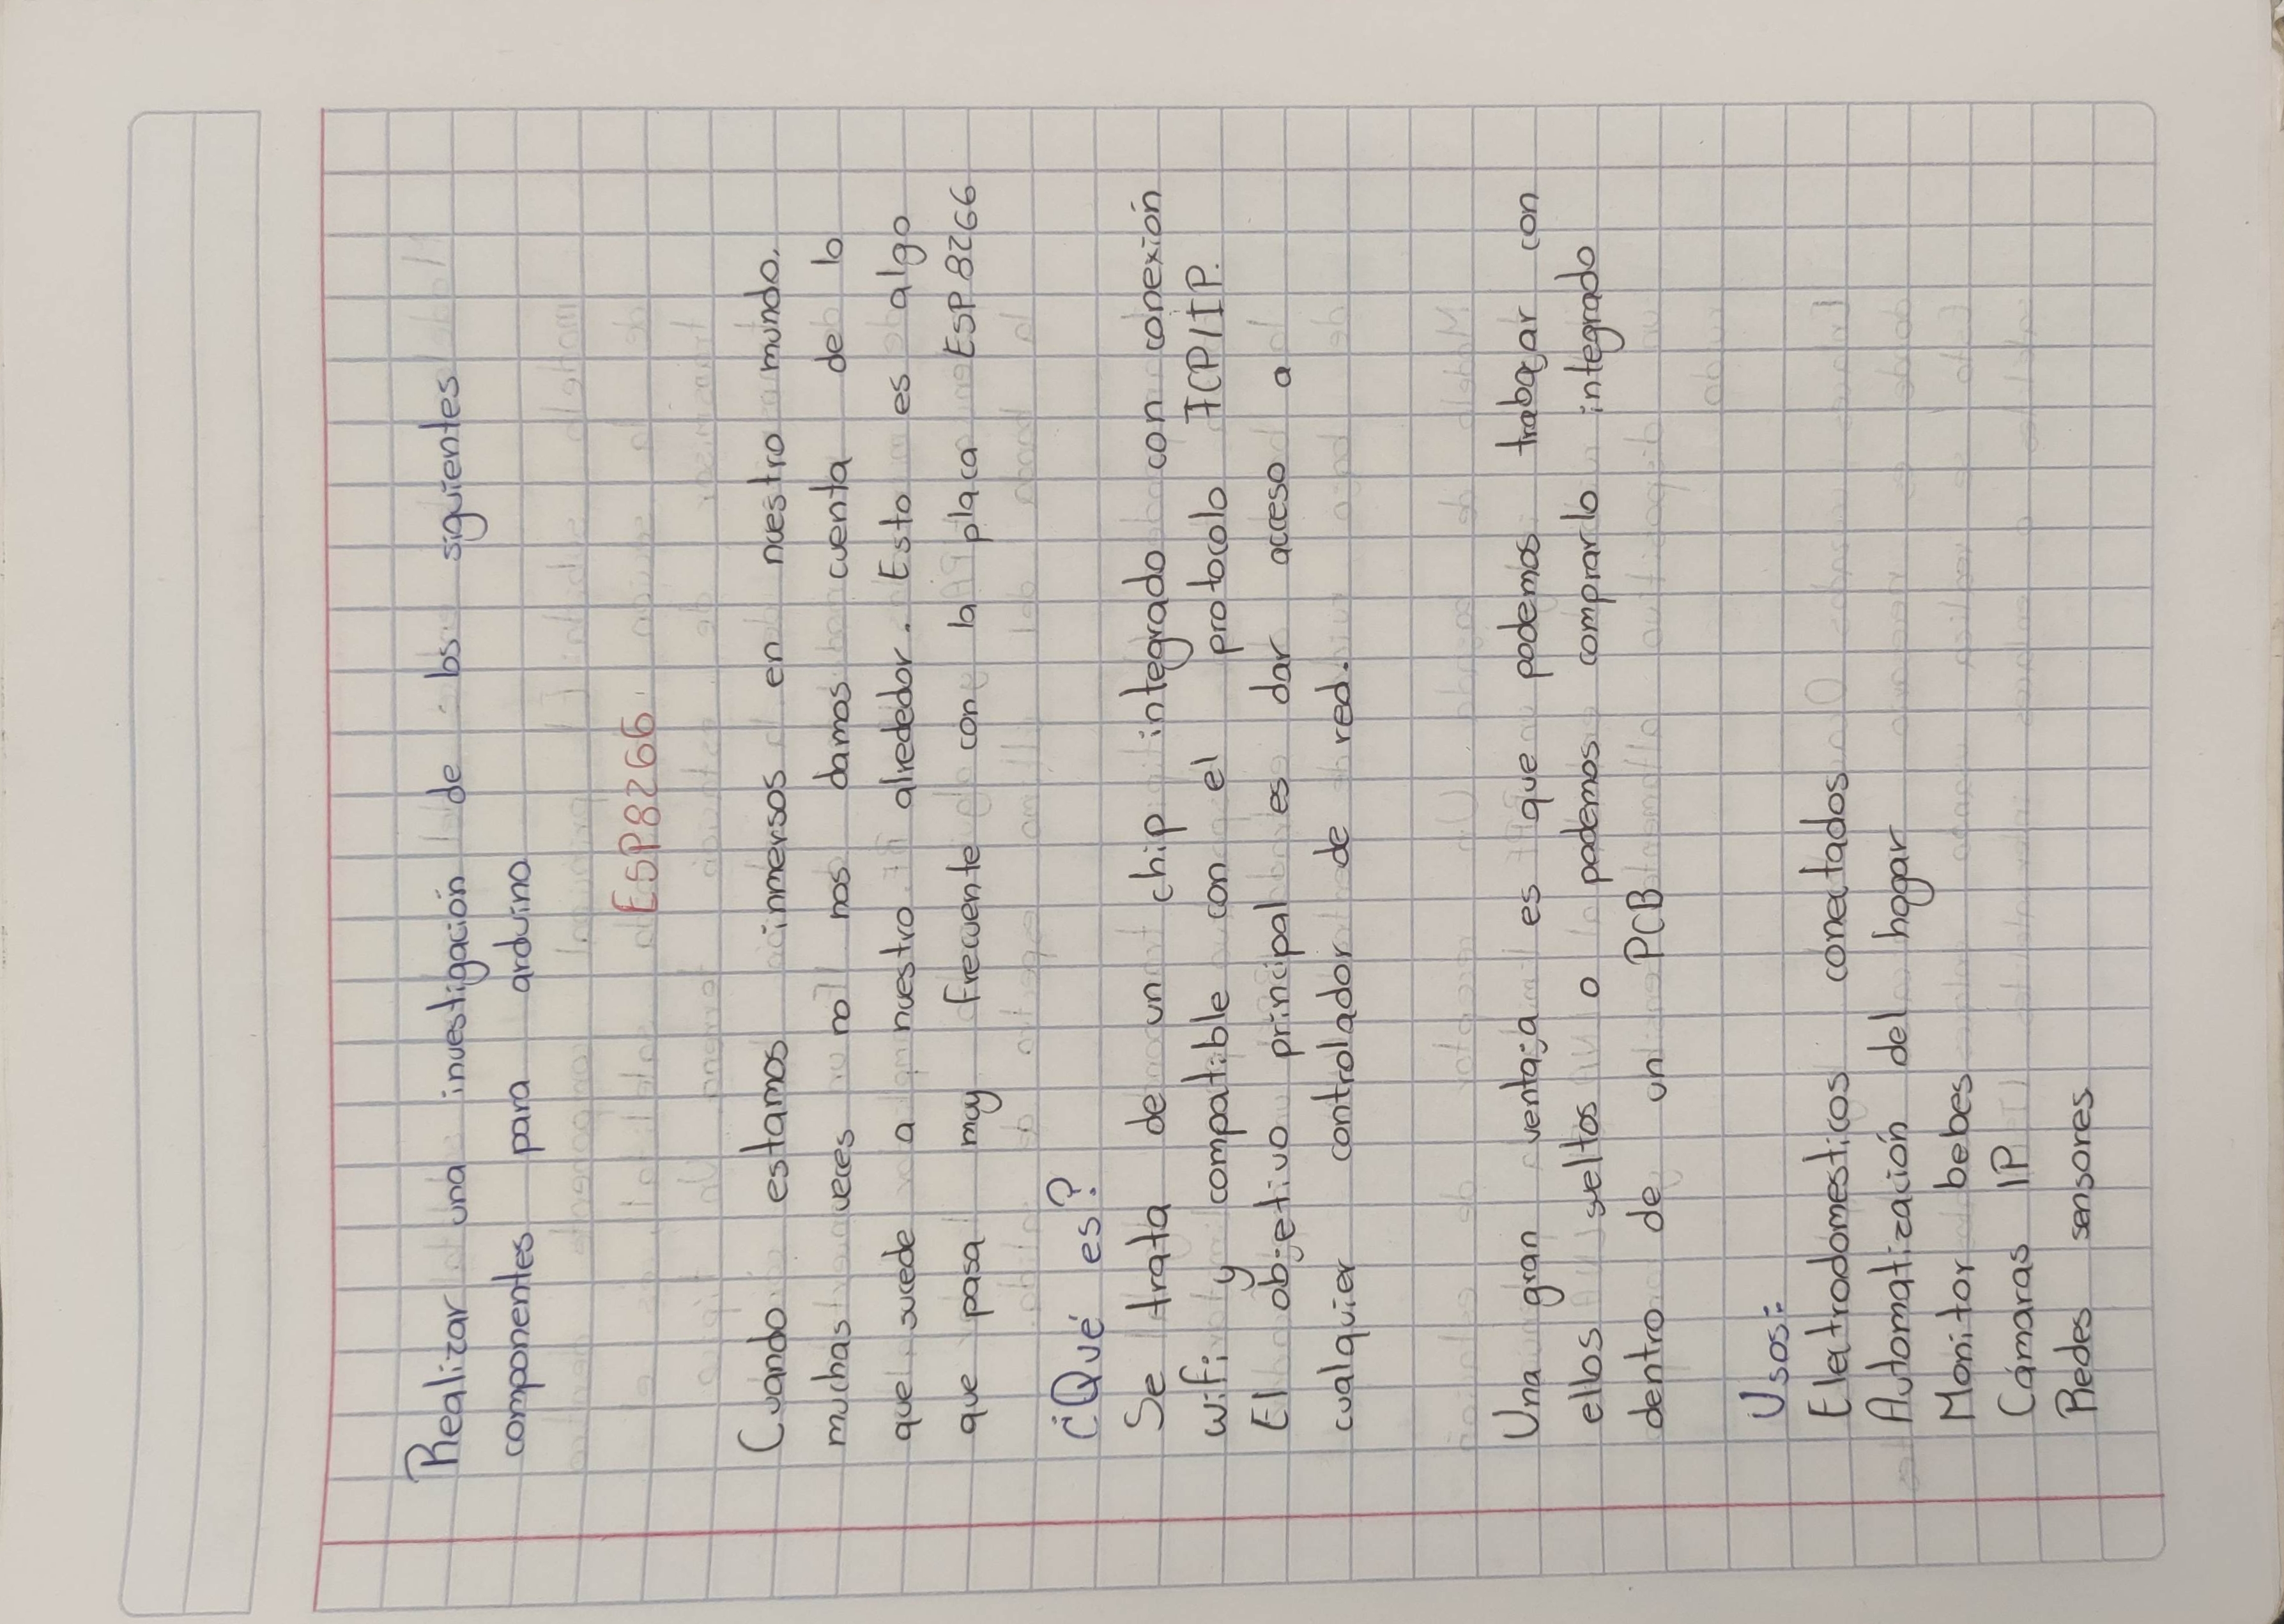 Realizar una investigación de los siguientes
componentes para arduino
ESP8266
Cuando estamos inmersos en nuestro mundo.
muchas veces no nos damos cuenta de lo
que sucede a nuestro alrededor. Esto es algo
que pasa muy frecuente con la placa ESP 8266
¿Qué es?
Se trata de un chip integrado con conexión
wifi y compatible con el protocolo TCP/IP.
El objetivo principal es dar acceso a
cualquier controlador de red.
Una gran ventaja es que podemos trabajar con
ellos sueltos o podemos comprarlo integrado
dentro de un PCB
Usos:
Electrodomesticos conectados
Automatización del hogar
Monitor bebes
Cámaras IP
Redes sensores